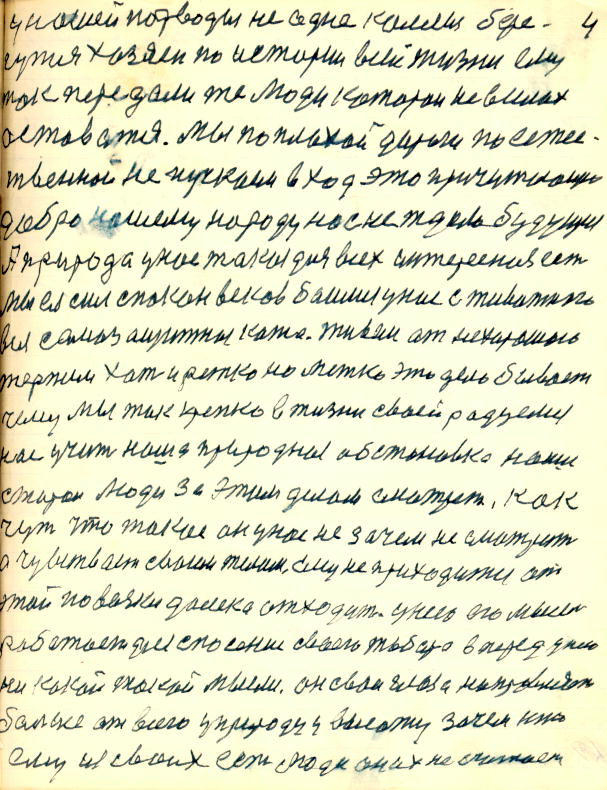 у нашей подводы не одне колеса бере- 4
гутся хозяен по истории всей жизни ему
так передали же люди катарои не в силах
оставатся. Мы по плохой дороги по есте-
твенной не пускаем в ход это
добро нашему народу нас не ждало будущия
А природа у нас такая для всех интересная есть
мы ся сил спокон веков у нас с животного
вся самозащитная кажа. Живем от нехорошого
терпим хоть и ретко но метко это дело бывает
чему мы так крепко в жизни своей радуемся
нас учит наша природная обстоновка наши
старои люди за этим делом смотрят, как
чут что такое он у нас не зачем не смотрит
а чувствает своим телом, ему не приходится от
этой повозки далека отходит. у него его мысль
работает для спасение своего товара вперед у него
ни какой такой мысли. он свои глаза направляет
больше от всего у природу у высоту зачем кто
ему из своих есть люди он их не считает